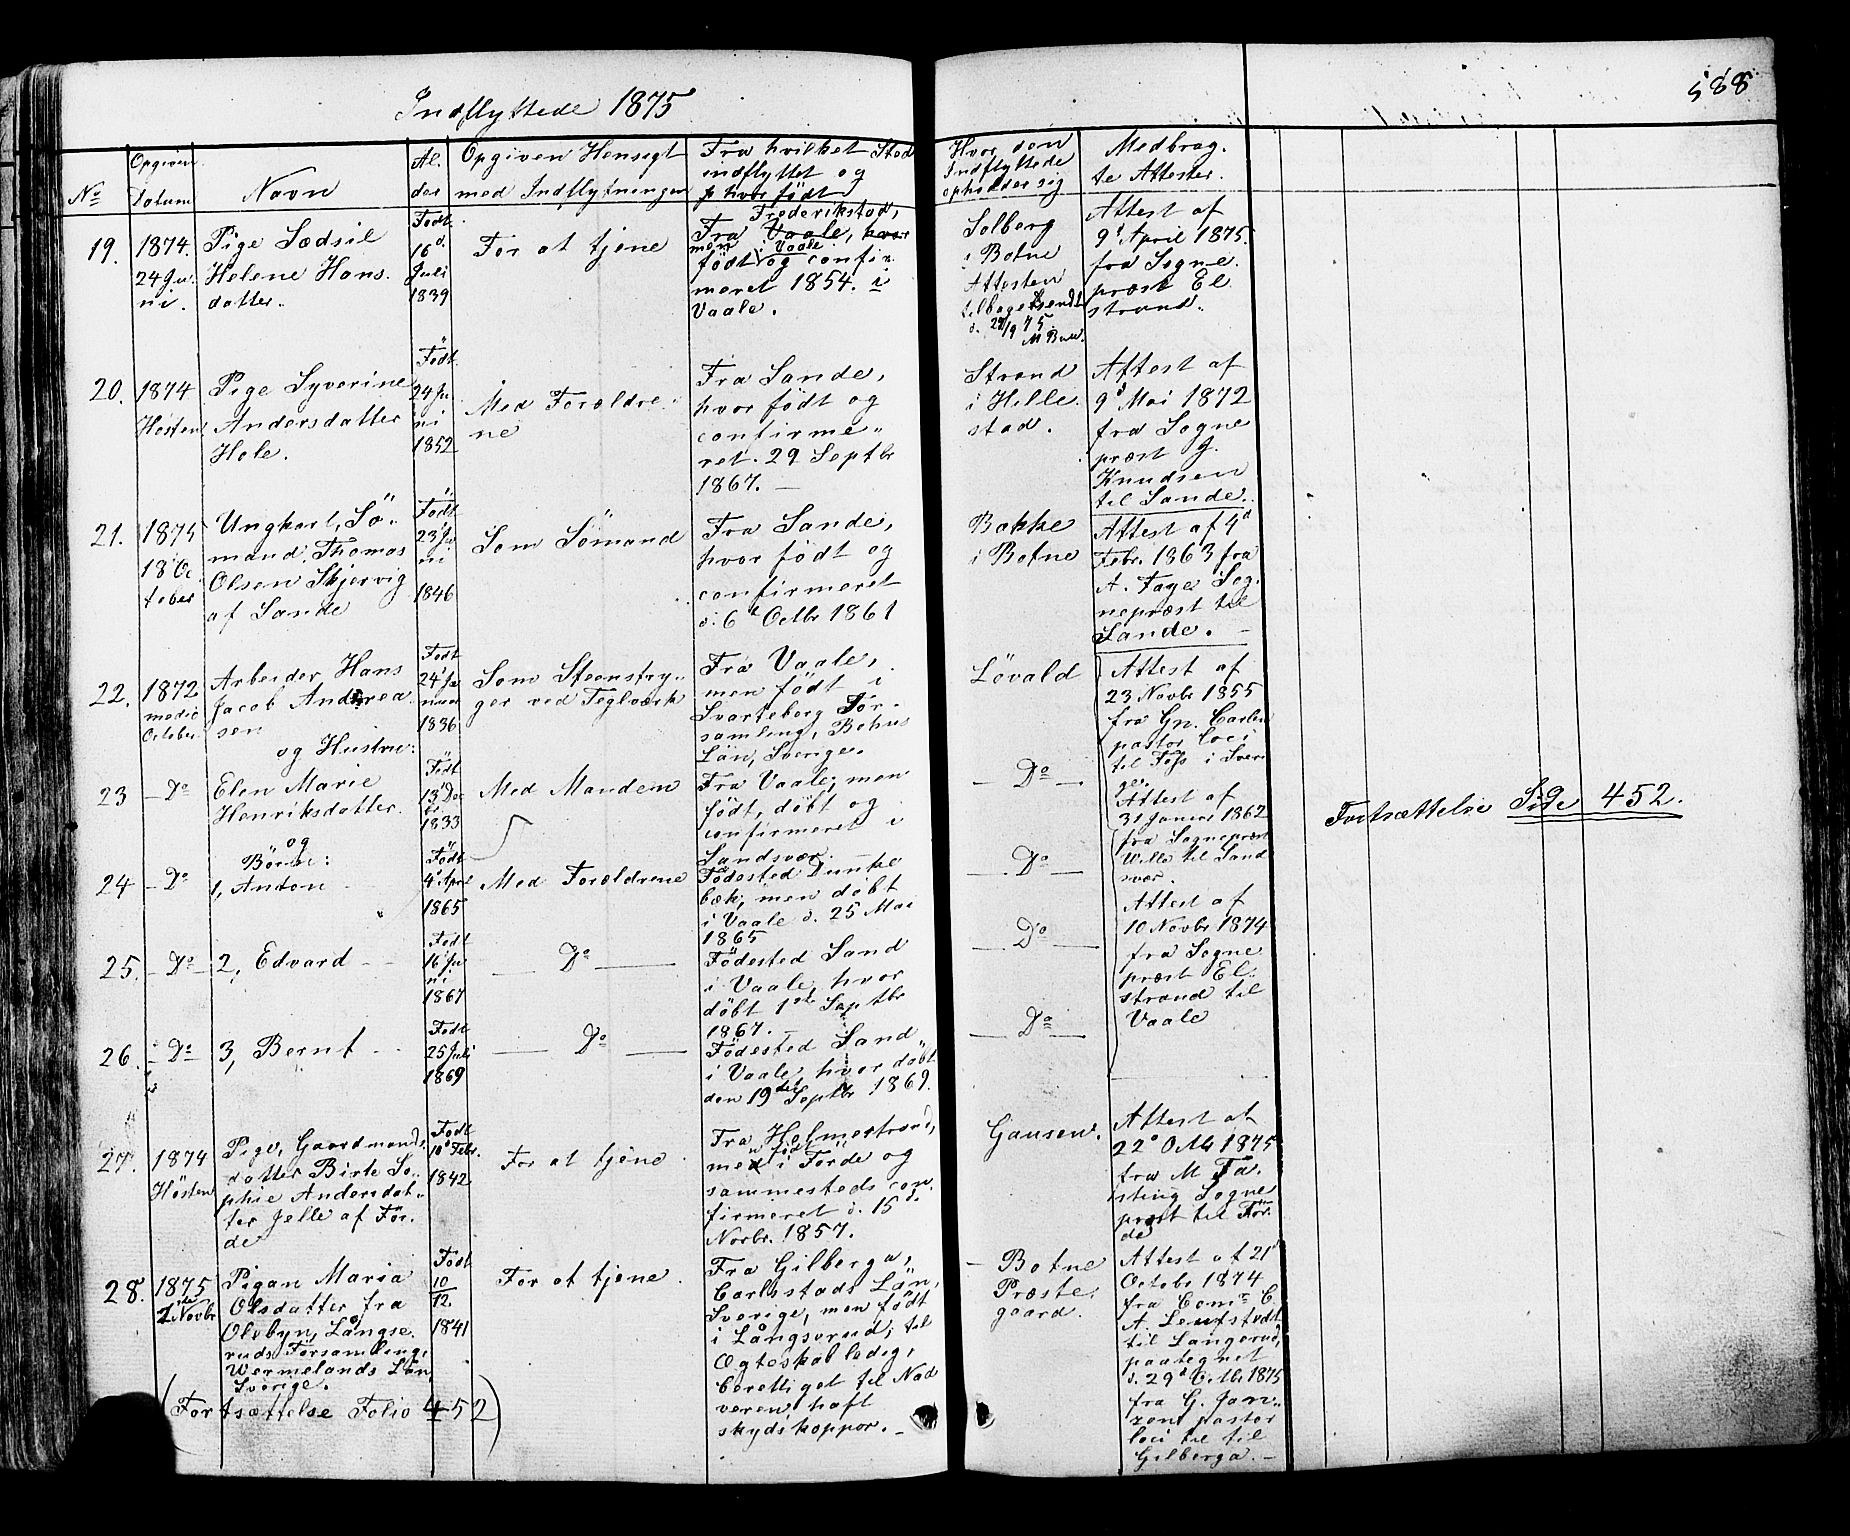 588
Indflyttede 1875
No
Opgiven
Datum
Navn
Al.
der
Opgiven Hensigt
med Indflytningen
Fra hvilket Sted
indflyttet og
hvor født
Hvor den
Indflyttede
opholder sig
Medbrag.
te Attester.
19.
1874.
24 Ju.
ni.
Pige Sedsil
Helene Hans.
datter.
Født
16d
Juli
1839
For at tjene
Frederikstad,
Fra Vaale, hvor
men i Vaale
født og confir
meret 1854. i
Vaale.
Solberg
i Botne
Attesten
tilbagesendt
Attest af
9d April 1875.
fra Sogne.
præst El
strand.
20.
1874
Høsten
Pige Syverine
Andersdatter
Hole.
Født
24 Ju
ni
1852
Med Forældre
ne
Fra Sande,
hvor født og
confirme„
ret. 29 Septbr
1867. —
Strand
i Hille.
stad.
Attest af
9d Mai 1872
fra Sogne
præst G.
Knudsen
til Sande.
21.
1875
18 Oc
tober
Ungkarl, Sø„
mand Thomas
Olsen Skjervig
af Sande
Født
23 Ju
ni
1846
Som Sømand
Fra Sande,
hvor født og
confirmeret
d. 6t Octbr 1861
Bakke
i Botne
Attest af 4d
Febr. 1863 fra
A. Faye Sog.
nepræst til
Sande. —
22.
1872
medio
October
Arbeider, Hans
Jacob Andrea
sen
og Hustru:
Født
24 Ja
nuar
1836
Som Steenstry„
ger ved Teglværk
Fra Vaale,
men født i
Svarteborg For„
samling, Bohus
Län, Sverige.
Løvald
Attest af
23 Novbr 1855
fra Gn. Carlen
pastor loci
til Foss i Sveri
ge.
23
— Do
Elen Marie
Henriksdatter.
og
Børn:
Født
13 De
1833
Med Manden
Fra Vaale; men
født, døbt og
confirmeret i
Sandsvær.
— Do —
Attest af
31 Januri 1862
fra Sognepræst
Wille til Sand
svær.
24
— Do
1, Anton
Født
4 April
1865
Med Forældrene
Fødested Dunke
bæk; men døbt
i Vaale d. 25 Mai
1865
— Do —
Attest af
10 Novbr 1874
fra Sogne
præst El„
strand til
Vaale
25.
— Do —
2, Edvard — —
Født
16 Ju
ni
1867
— Do —
Fødested Sand
i Vaale, hvor
døbt 1ste Septbr
1867. —
— Do —
26.
— Do —
3, Bernt — —
Født
25 Juli
1869
— Do —
Fødested Sand
i Vaale, hvor døbt
den 19det Septbr 1869.
— Do —
Fortsættelse Side 452.
27.
1874
Høsten
Pige, Gaardmands
datter Birte So„
phie Andersdat„
ter Jelle af Før.
de
Født
10 Febr.
1842
For at tjene
Fra Holmestrand,
men født i Førde og
sammesteds con.
firmeret d. 15d
Novbr. 1857.
Gausen.
Attest af
22d Octbr 1875
fra M Fa.
sting Sogne
præst til Før.
de
28.
1875
2 Novbr
Pigen Maria
Olsdatter fra
Olebyn, Långse.
ruds Församling,
Wermelands Län
Sverige.
Født
10
12
1841
For at tjene.
Fra Gilberga,
Carlsstads Län,
Sverige, men født
i Långserud; til
Ægteskab ledig,
berettiget til Nad
veren haft
skydskoppor. —
— Botne
Præste„
gaard.
Attest af 21d
Octobr 1874
fra Comr C.
A. Leufstedt
til Langerud,
paategnet
d. 29d Octbr 1875
fra G. Jan„
zon, pastor
loci til til
Gilberga. —
(Fortsættelse Folio 452)